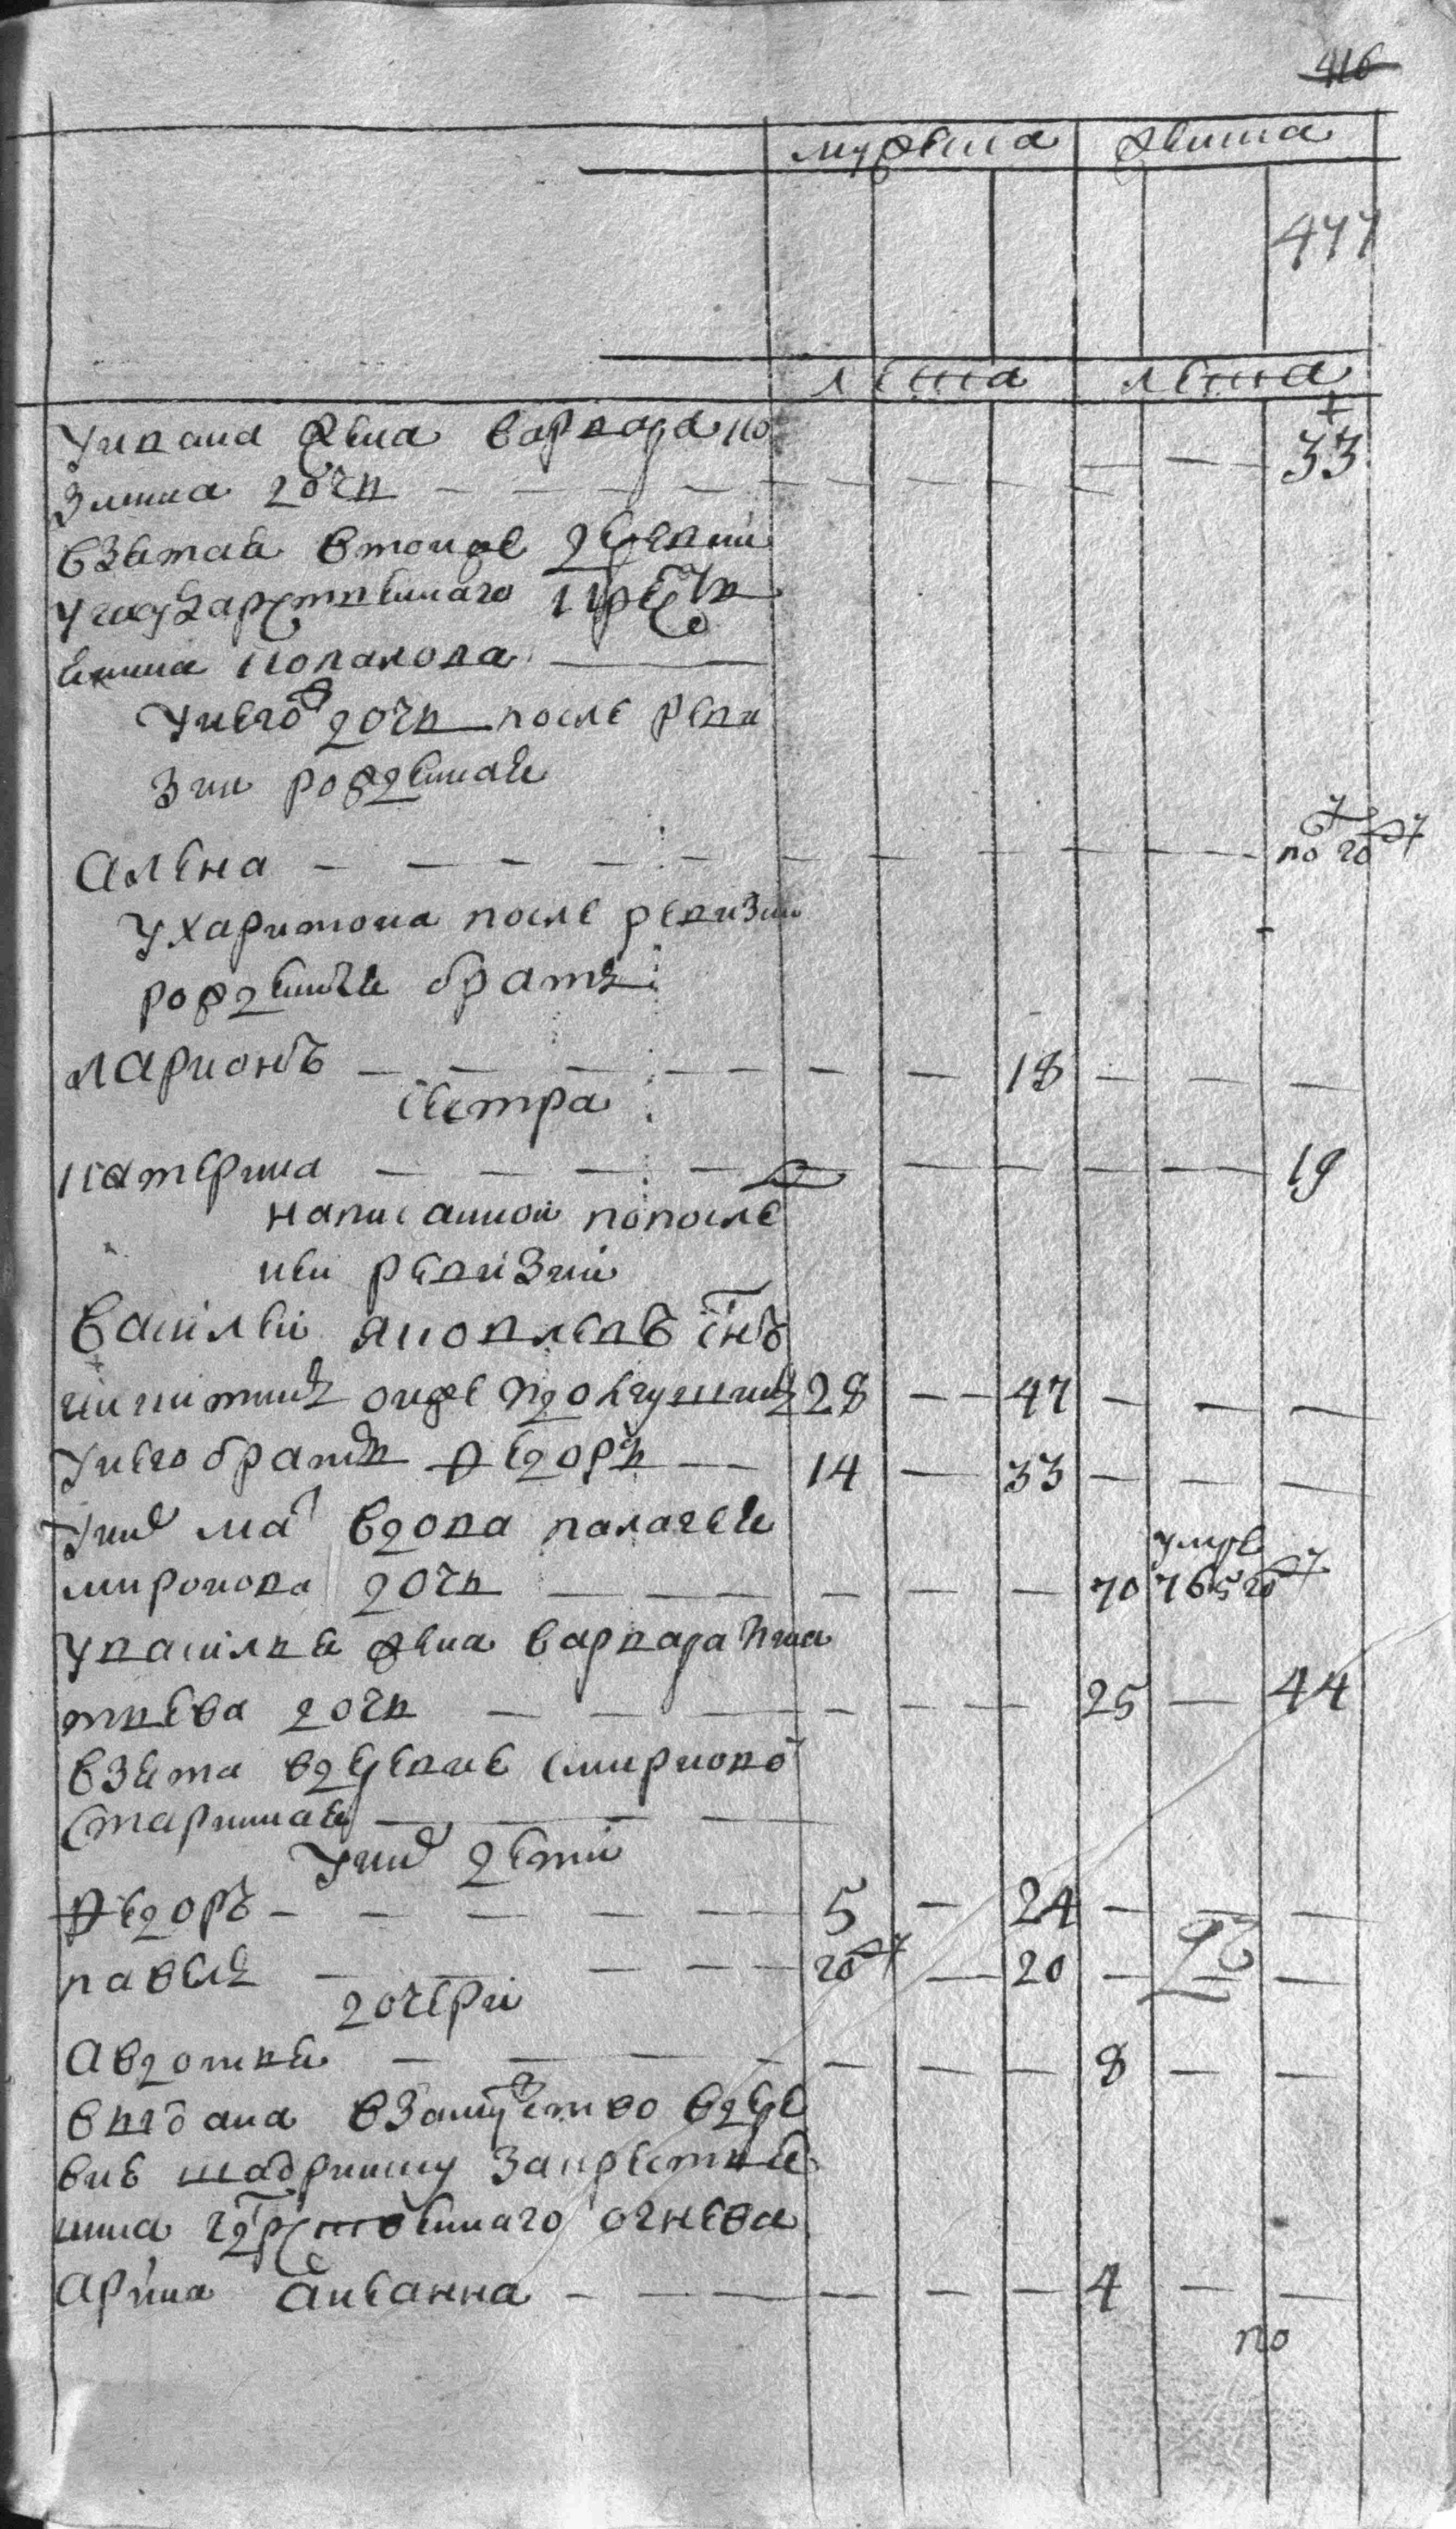 416
мужеска женска
477
лета лета
У ивана жена варвара ко
змина дочь — 33
взятая втойже деревни
у государственаго крестья
нина коновалова —
У него дочь после реви
зии рожденная
Алена — по 20
У харитона после ревизии
рожденные братъ
Ларионъ — 18
сестра
катерина — 19
написанной попосле
ней ревизии
Василей яковлевъ снъ
28 — 47
У него братъ федоръ — 14 — 33
У ниъ мать вдова палагея умре
миронова дочь — 70 76
У василья жена варвара игна
тьева дочь — 25 — 44
взята вдеревне смирново
старинная —
У ниъ дети
федоръ — 5 — 24
павелъ — 20 — 20
дочери
Авдотья — 8
выдана взамужество вдере
вне шадрину закрестья
нина гдрственнаго огнева
Арина — 4
по